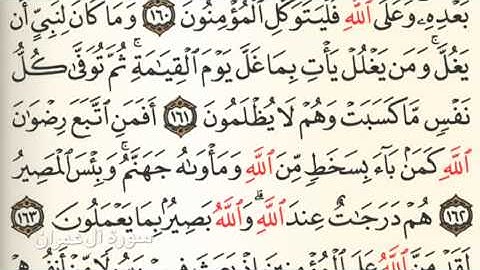 بَعْدِهِۦ وَعَلَى ٱللَّهِ فَلْيَتَوَكَّلِ ٱلْمُؤْمِنُونَ ١٦٠ وَمَا كَانَ لِنَبِىٍّ أَن
يَغُلَّ ۚ وَمَن يَغْلُلْ يَأْتِ بِمَا غَلَّ يَوْمَ ٱلْقِيَٰمَةِ ۚ ثُمَّ تُوَفَّىٰ كُلُّ
نَفْسٍ مَّا كَسَبَتْ وَهُمْ لَا يُظْلَمُونَ ١٦١ أَفَمَنِ ٱتَّبَعَ رِضْوَٰنَ
ٱللَّهِ كَمَنۢ بَآءَ بِسَخَطٍ مِّنَ ٱللَّهِ وَمَأْوَىٰهُ جَهَنَّمُ ۚ وَبِئْسَ ٱلْمَصِيرُ
١٦٢ هُمْ دَرَجَٰتٌ عِندَ ٱللَّهِ ۗ وَٱللَّهُ بَصِيرٌۢ بِمَا يَعْمَلُونَ ١٦٣
سورة آل عمران
لَقَدْ مَنَّ ٱللَّهُ عَلَى ٱلْمُؤْمِنِينَ إِذْ بَعَثَ فِيهِمْ رَسُولًا مِّنْ أَنفُسِهِمْ